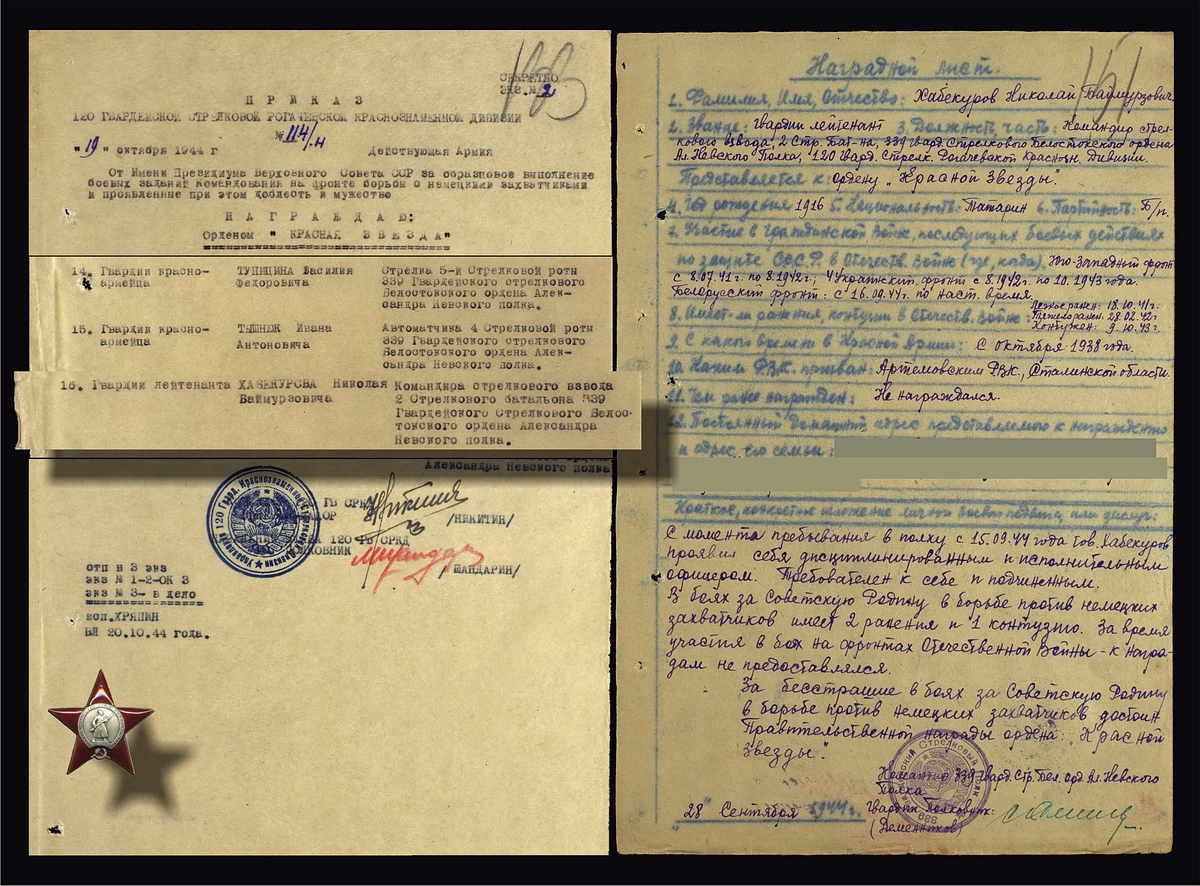 СЕКРЕТНО
ЭКЗ.№ 2
П Р И К А З
120 ГВАРДЕЙСКОЙ СТРЕЛКОВОЙ РОГАЧЕВСКОЙ КРАСНОЗНАМЕННОЙ ДИВИЗИИ
№ 114/н
"19" октября 1944 г Действующая Армия
От Имени Президиума Верховного Совета ССР за образцовое выполнение
боевых заданий Командования на фронте борьбы с немецкими захватчиками
и проявленные при этом доблесть и мужество
Н А Г Р А Ж Д А Ю:
Орденом " КРАСНАЯ ЗВЕЗДА"
14. Гвардии красно- ТУПИЦИНА Василия Стрелка 5-й Стрелковой роты
армейца Федоровича 339 Гвардейского стрелкового
Белостокского ордена Алек-
сандра Невского полка.
15. Гвардии красно- ТЫШНЮК Ивана Автоматчика 4 Стрелковой роты
армейца Антоновича 339 Гвардейского стрелкового
Белостокского ордена Алек-
сандра Невского полка.
16. Гвардии лейтенанта ХАБЕКУРОВА Николая Командира стрелкового взвода
Баймурзовича 2 Стрелкового батальона 339
Гвардейского Стрелкового Белос-
токского ордена Александра
Невского полка.
Александра Невского полка
/НИКИТИН/
/ШАНДАРИН/
ОТП В 3 ЭКЗ
ЭКЗ № 1-2-ОК 3
ЭКЗ № 3- в ДЕЛО
исп.ХРЯПИН
ВЛ 20.10.44 года.
Наградной лист.
1. Фамилия, Имя, Отчество: Хабекуров Николай Баймурзович
2. Звание: Гвардии лейтенант 3. Должность, часть: Командир стрел-
кового взвода, 2 Стр. Бат-на, 339 гвард. Стрелкового Белостокского ордена
Ал. Невского Полка, 120 Гвард. Стрелк. Рогачевской Краснозн. Дивизии.
Представляется к: ордену "Красной Звезды".
4. Год рождения 1916 5. Национальность: Татарин 6. Партийность: Б/п.
7. Участие в Гражданской Войне, последующих боевых действиях
по защите СССР в Отечеств. Войне (где, когда). Юго-Западный фронт
с 8.07.41г. по 8.1942г; 4 Украинский фронт с 8.1942г. по 10.1943 года.
Белорусский фронт: с 16.09.44г. по наст. время.
8. Имеет-ли ранения, контузии в Отечеств. Войне: Легкое ранен: 18.10.41г.
Тяжело ранен: 28.02.42г.
Контужен: 9.10.43г.
9. С какого времени в Красной Армии: С октября 1938 года.
10. Каким РВК призван: Артемовским РВК, Сталинской области.
11. Чем ранее награжден: Не награждался.
12. Постоянный домашний адрес представляемого к награждению
и адрес его семьи:
Краткое, конкретное изложение личного боевого подвига или заслуг:
С момента пребывания в полку с 15.09.44 года тов. Хабекуров
проявил себя дисциплинированным и исполнительным
офицером. Требователен к себе и подчиненным.
В боях за Советскую Родину в борьбе против немецких
захватчиков имеет 2 ранения и 1 контузию. За время
участия в боях на фронтах Отечественной Войны - к награ-
дам не предоставлялся.
За бесстрашие в боях за Советскую Родину
в борьбе против немецких захватчиков достоин
Правительственной награды ордена: "Красной
Звезды."
Командир 339 гвард. Стр. Бел. орд. Ал. Невского
Полка
28" Сентября 1944г. Гвардии Полковник: